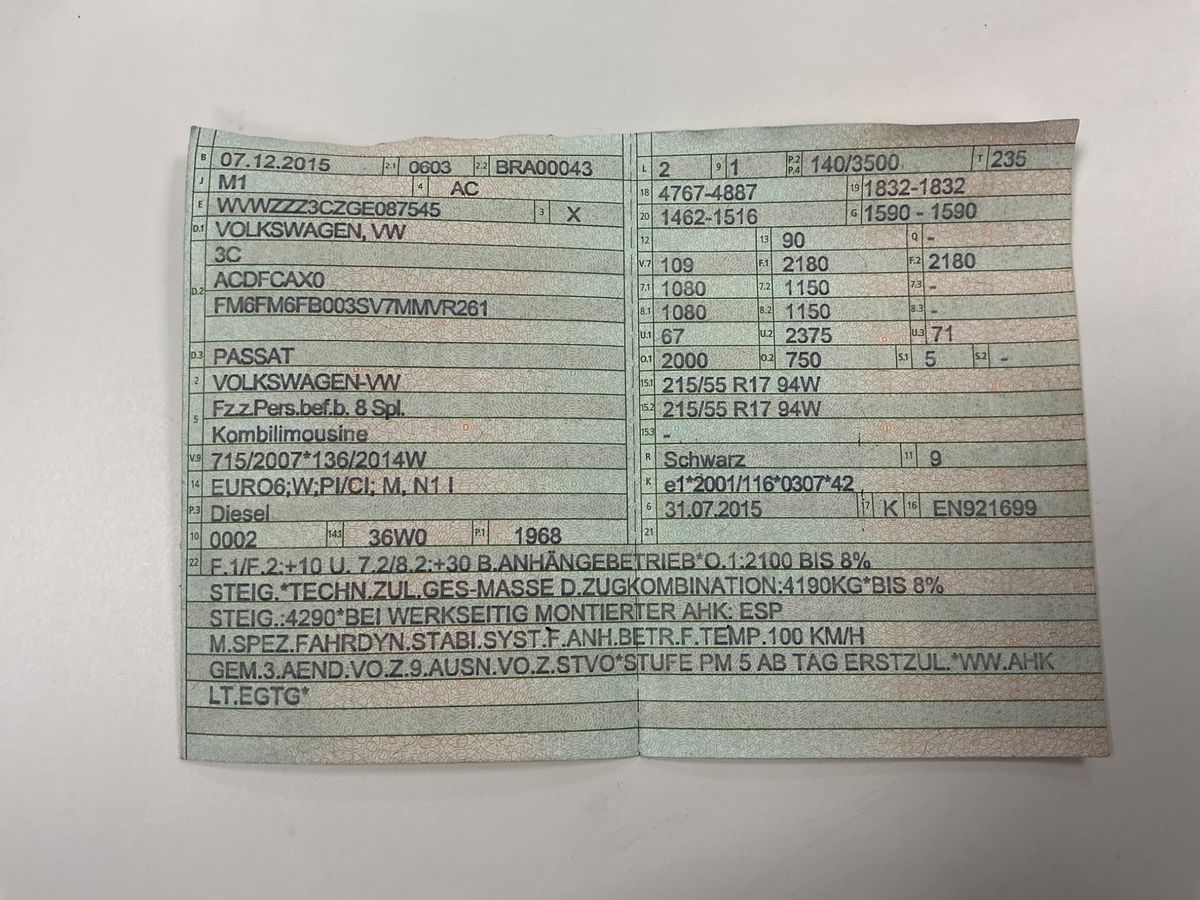 B 07.12.2015 2.1 0603 2.2 BRA00043
J M1 4 AC
E WVWZZZ3CZGE087545 3 X
D.1 VOLKSWAGEN, VW
3C
D.2 ACDFCAX0
FM6FM6FB003SV7MMVR261
D.3 PASSAT
2 VOLKSWAGEN-VW
5 Fz.z.Pers.bef.b. 8 Spl.
Kombilimousine
V.9 715/2007*136/2014W
14 EURO6;W;PI/CI; M, N1 I
P.3 Diesel
10 0002 14.1 36W0 P.1 1968
L 2 9 1 P.2 P.4 140/3500 T 235
18 4767-4887 19 1832-1832
20 1462-1516 G 1590 - 1590
12 13 90 Q -
V.7 109 F.1 2180 F.2 2180
7.1 1080 7.2 1150 7.3 -
8.1 1080 8.2 1150 8.3 -
U.1 67 U.2 2375 U.3 71
O.1 2000 O.2 750 S.1 5 S.2 -
15.1 215/55 R17 94W
15.2 215/55 R17 94W
15.3 -
R Schwarz 11 9
K e1*2001/116*0307*42
6 31.07.2015 17 K 16 EN921699
21
22 F.1/F.2:+10 U. 7.2/8.2:+30 B.ANHÄNGEBETRIEB*O.1:2100 BIS 8%
STEIG.*TECHN.ZUL.GES-MASSE D.ZUGKOMBINATION:4190KG*BIS 8%
STEIG.:4290*BEI WERKSEITIG MONTIERTER AHK: ESP
M.SPEZ.FAHRDYN.STABI.SYST.F.ANH.BETR.F.TEMP.100 KM/H
GEM.3.AEND.VO.Z.9.AUSN.VO.Z.STVO*STUFE PM 5 AB TAG ERSTZUL.*WW.AHK
LT.EGTG*